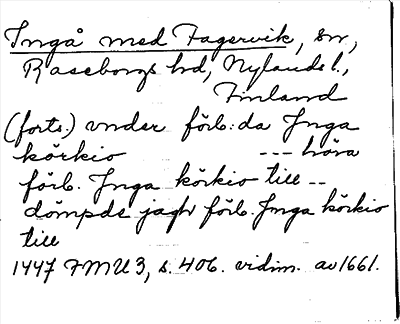 Ingå med Fagervik, sn,
Raseborgs hd, Nylands l.,
Finland
(forts.) under förb:da Jnga
körkio --- höra
förb. Jnga körkio till --
dömpde jagh förb. Jnga körkio
till
1447 FMU 3, s. 406. vidim. av 1661.